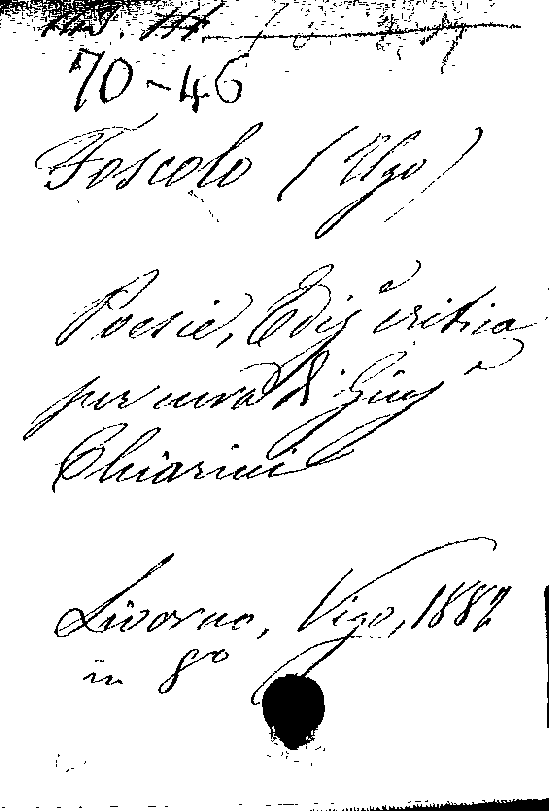 70-46
Foscolo (Ugo)
Poesie, Ediz.e critica
per cura di Giusᵉ
Chiarini
Livorno, Vigo, 1882
in 8º